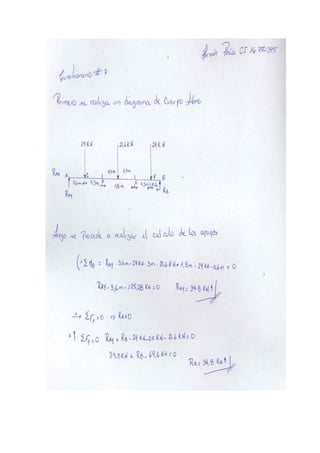 Cuestionario #7
Primero se realiza un diagrama de Cuerpo libre
24 KN 21,6 KN 24 KN
RAx A B
RAy RB
Luego se Procede a realizar el calculo de los apoyos
ΣMB = RAy·3,6m-24KN·3m-21,6KN·1,8m-24KN·0,6m = 0
RAy·3,6m-125,28KN=0 RAy = 34,8 KN↑
ΣFx=0 ⇒ RAx=0
+↑ ΣFy=0 RAy + RB-24KN-24KN-21,6KN=0
34,8KN + RB-69,6KN=0
RB = 34,8 KN↑